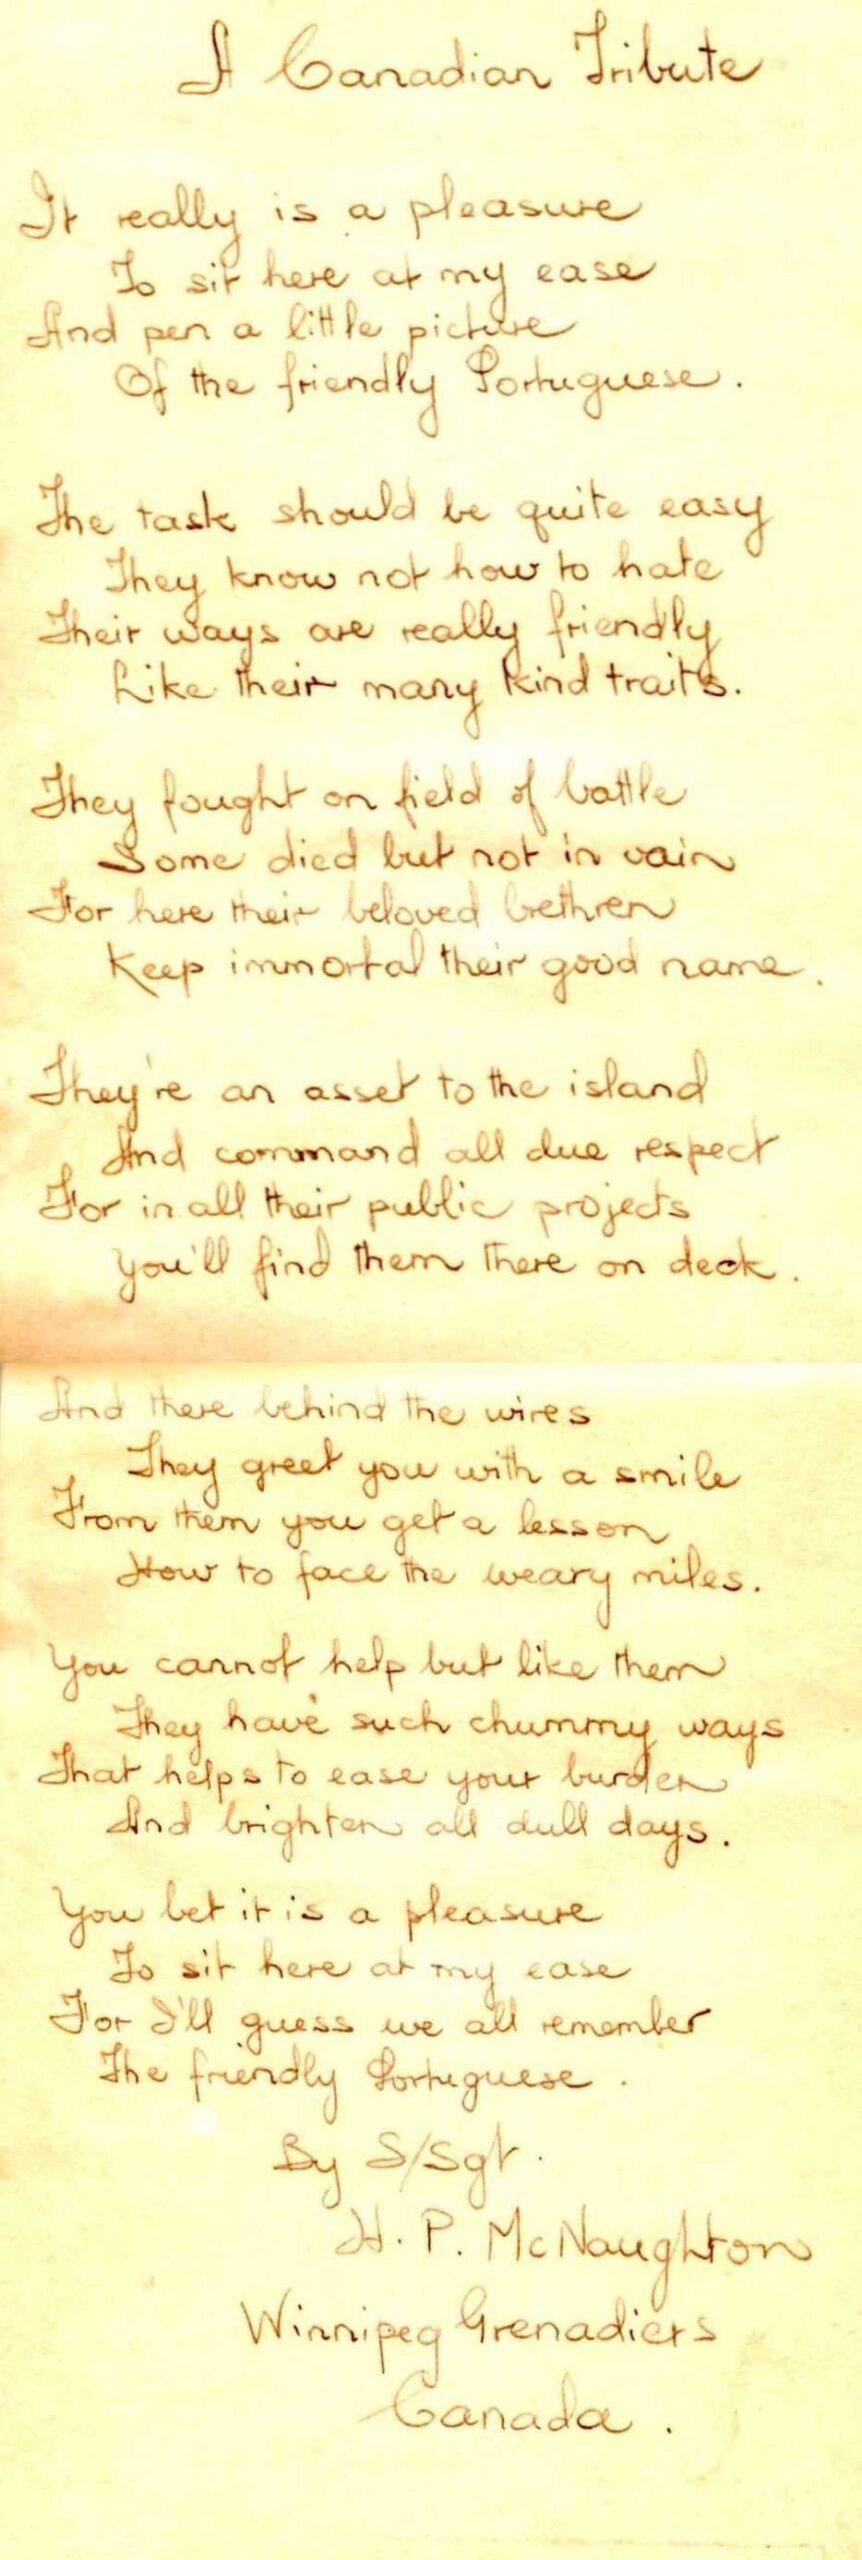 A Canadian Tribute
It really is a pleasure
To sit here at my ease
And pen a little picture
Of the friendly Portuguese.
The task should be quite easy
They know not how to hate
Their ways are really friendly
Like their many kind traits.
They fought on field of battle
Some died but not in vain
For here their beloved brethren
Keep immortal their good name.
They're an asset to the island
And command all due respect
For in all their public projects
You'll find them there on deck.
And there behind the wires
They greet you with a smile
From them you get a lesson
How to face the weary miles.
You cannot help but like them
They have such chummy ways
That helps to ease your burden
And brighten all dull days.
You bet it is a pleasure
To sit here at my ease
For I'll guess we all remember
The friendly Portuguese.
By S/Sgt.
H. P. McNaughton
Winnipeg Grenadiers
Canada.